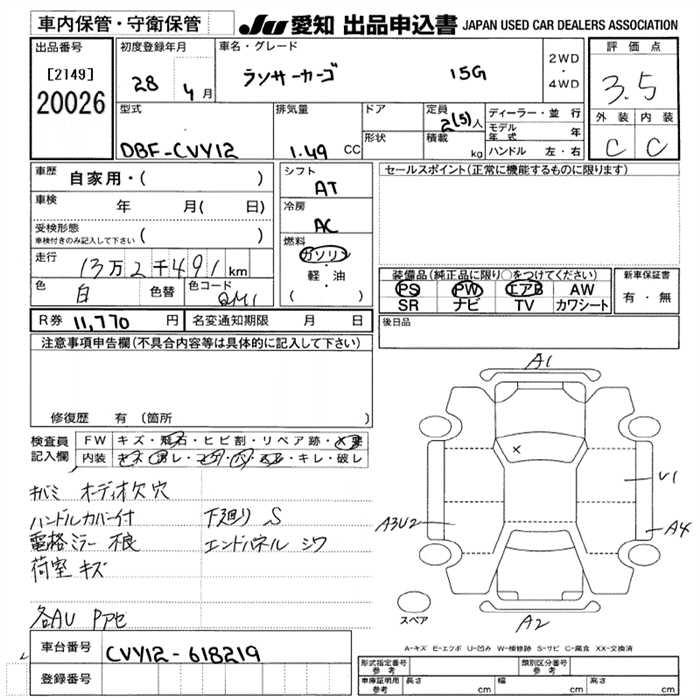 車内保管・守衛保管
JU 愛知 出品申込書 JAPAN USED CAR DEALERS ASSOCIATION
出品番号
[2149]
20026
初度登録年月
28 4月
車名・グレード
ランサーカーゴ 15G
2WD
・
4WD
評価点
3.5
外装 内装
C C
型式
DBF-CVY12
排気量
1.49 CC
ドア
形状
定員
2(5)人
積載
kg
ディーラー・並行
モデル年式 年
ハンドル 左・右
車歴 自家用・( )
車検 年 月( 日)
受検形態
車検付きのみ記入して下さい ( )
走行 13万2千491km
色 白 色替 色コード QM1
シフト
AT
冷房
AC
燃料
ガソリン
・
軽・油
( )
セールスポイント(正常に機能するものに限ります)
装備品(純正品に限り○をつけてください)
PS PW エアB AW
SR ナビ TV カワシート
新車保証書
有・無
R券 11,770 円 名変通知期限 月 日
後日品
注意事項申告欄(不具合内容等は具体的に記入して下さい)
修復歴 有(箇所 )
検査員
記入欄
FW キズ・飛石・ヒビ割・リペア跡・×要
内装 キズ・汚レ・コゲ・穴・スレ・キレ・破レ
キバミ オーディオ欠 穴
ハンドルカバー付 下廻り S
電格ミラー不良 エンドパネル シワ
荷室 キズ
各AU Pアセ
A1
×
V1
A3U2
A4
スペア
A2
A-キズ E-エクボ U-凹み W-補修跡 S-サビ C-腐食 XX-交換済
車台番号 CVY12-618219
登録番号
形式指定番号
参考
類別区分番号
参考
車庫証明用
参考
長さ cm 幅 cm 高さ cm